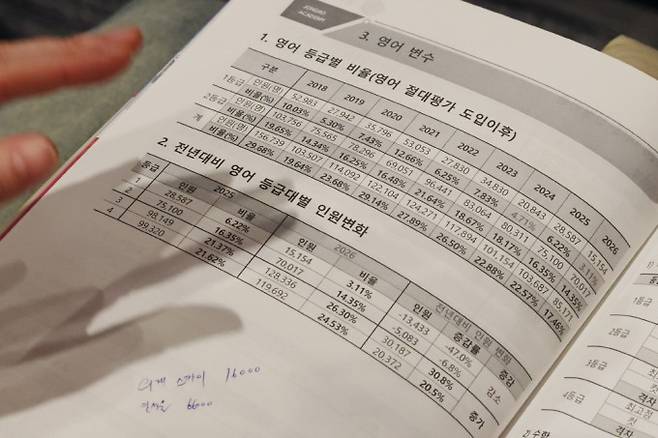 JONGRO
ACADEMY
3. 영어 변수
1. 영어 등급별 비율(영어 절대평가 도입이후)
구분 2018 2019 2020 2021 2022 2023 2024 2025 2026
1등급 인원(명) 52,983 27,942 35,796 53,053 27,830 34,830 20,843 28,587 15,154
비율(%) 10.03% 5.30% 7.43% 12.66% 6.25% 7.83% 4.71% 6.22% 3.11%
2등급 인원(명) 103,756 75,565 78,296 69,051 96,441 83,064 80,311 75,100 70,017
비율(%) 19.65% 14.34% 16.25% 16.48% 21.64% 18.67% 18.17% 16.35% 14.35%
계 인원(명) 156,739 103,507 114,092 122,104 124,271 117,894 101,154 103,687 85,171
비율(%) 29.68% 19.64% 23.68% 29.14% 27.89% 26.50% 22.88% 22.57% 17.46%
2. 전년대비 영어 등급대별 인원변화
등급 2025 2026 전년대비 인원 변화
인원 비율 인원 비율 인원 증감률 증감
1 28,587 6.22% 15,154 3.11% -13,433 -47.0% 감소
2 75,100 16.35% 70,017 14.35% -5,083 -6.8%
3 98,149 21.37% 128,336 26.30% 30,187 30.8% 증가
4 99,320 21.62% 119,692 24.53% 20,372 20.5%
16000
6600
2등급
컷
3등급
컷
격자
4등급
최고점
컷
격자
2) 수학